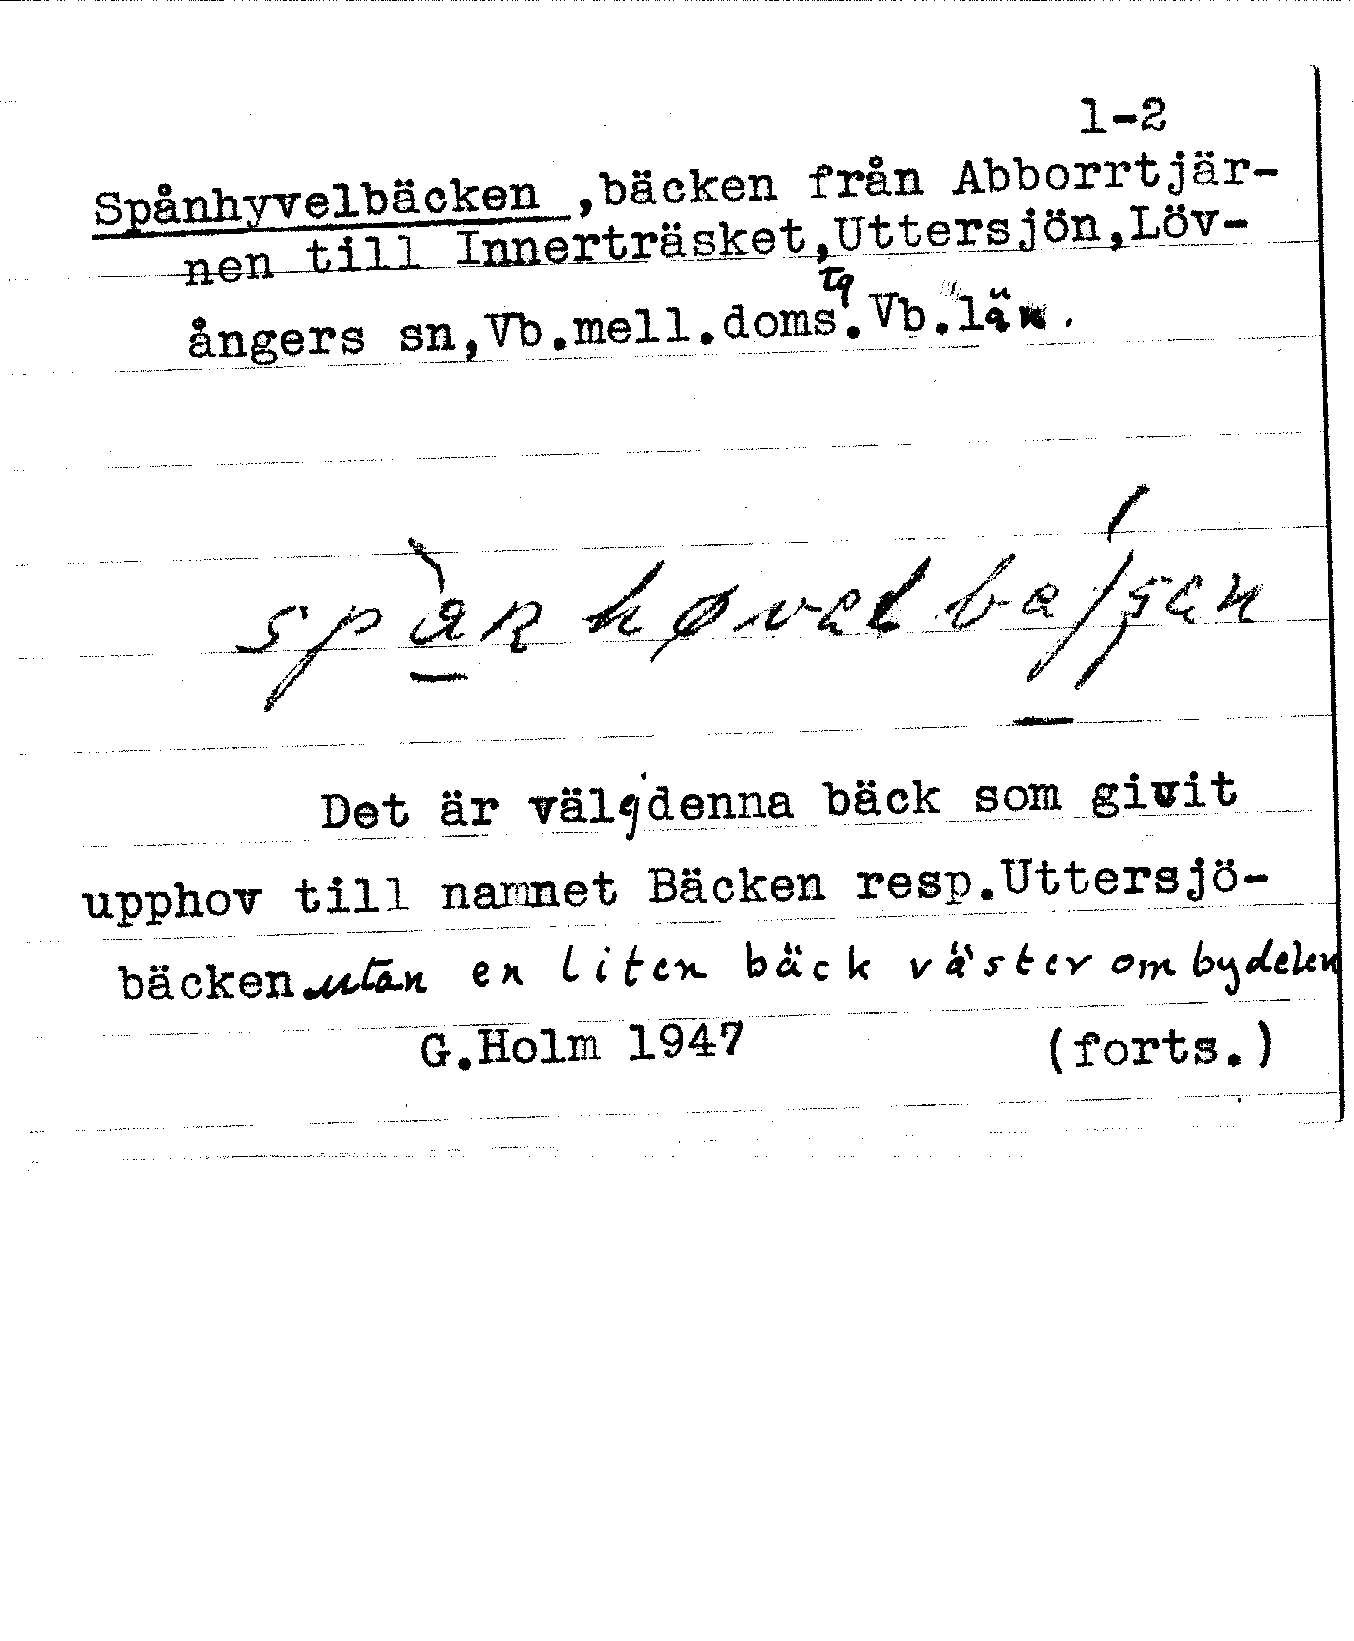 1-2
Spånhyvelbäcken ,bäcken från Abborrtjär-
nen till Innerträsket,Uttersjön,Löv-
ångers sn,Vb.mell.doms.tg Vb.län.
Det är väl ej denna bäck som givit
upphov till namnet Bäcken resp.Uttersjö-
bäcken utan en liten bäck väster om bydelen
G.Holm 1947 (forts.)